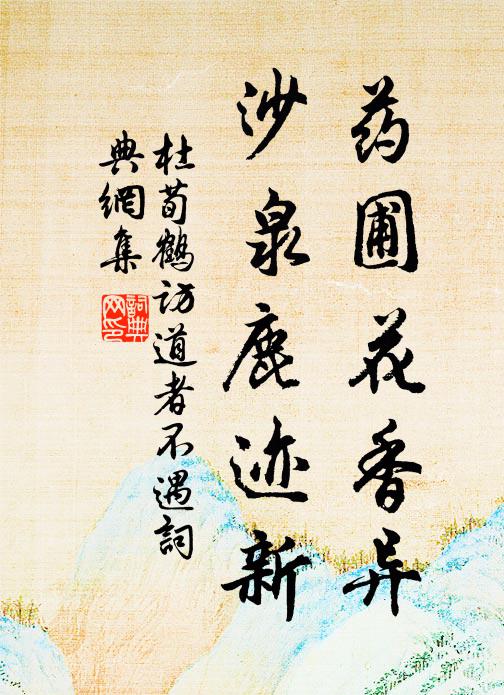 药圃花香异
沙泉鹿迹新
杜荀鹤访道者不遇詞
典網集
詞典网印